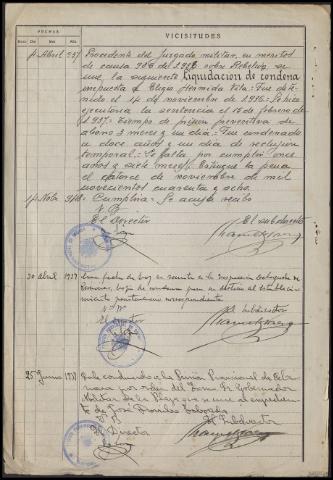 FECHAS
VICISITUDES
Día Mes Año
1º Abril 937 Procedente del Juzgado militar, en méritos
de causa 906 del 1936 sobre Rebelión, se
une, la siguiente Liquidación de condena
impuesta a Hermida Vila: Fue dete-
nido el 14 de noviembre de 1936: Se hizo
ejecutoria la sentencia el 15 de febrero de
1937: Tiempo de prisión preventiva de
abono 3 meses y un día: Fue condenado
a doce años y un día de reclusión
temporal: Le falta por cumplir once
años
el catorce de noviembre de mil
novecientos cuarenta y ocho.
1ª Nota Se acusa recibo
Vº Bº
El Director El subdirector
30 Abril 1937 Con fecha de hoy se remite a la Inspección
Prisiones, hoja de condena para su destino al estableci-
miento penitenciario correspondiente
Vº Bº
El Director El Subdirector
25 Junio 1937 Sale conducido a la Prisión Provincial de
por orden del Gobernador
Militar de la Plaza que se une al expedien-
te de José
Vº Bº El Subdirector
El Director